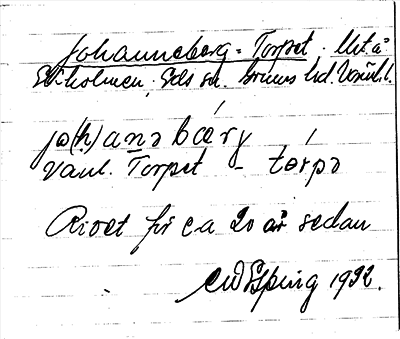 Johanneberg = Torpet. Utå
Ekholmen, Eds sn. Bruns hd. Värml.
jo(h)anəbárj
Vanl. Torpet - tórpə
Rivet för c a 20 år sedan
CWEsping 1932.